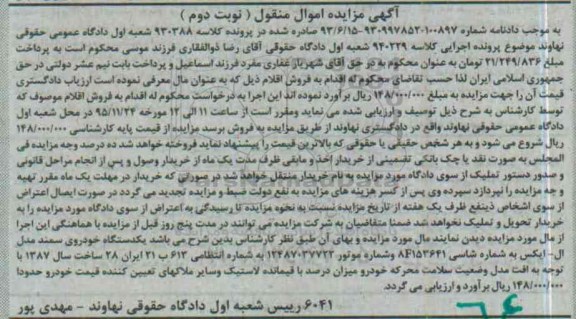 آگهی مزایده اموال منقول ( نوبت دوم )
به موجب دادنامه شماره ۹۳۰۹۹۷۸۵۲۰۱۰۰۸۹۷-۹۳/۶/۱۵ صادره شده در پرونده کلاسه ۹۳۰۳۸۸ شعبه اول دادگاه عمومی حقوقی
نهاوند موضوع پرونده اجرایی کلاسه ۹۴۰۲۲۹ شعبه اول دادگاه حقوقی آقای رضا ذوالفقاری فرزند موسی محکوم است به پرداخت
مبلغ ۲۱/۲۴۹/۸۳۶ تومان به عنوان محکوم به در حق آقای شهریار غفاری مفرد فرزند اسماعیل و پرداخت بابت نیم عشر دولتی در حق
جمهوری اسلامی ایران لذا حسب تقاضای محکوم له اقدام به فروش اقلام ذیل که به عنوان مال معرفی نموده است ارزیاب دادگستری
قیمت آن را جهت مزایده به مبلغ ۱۴۸/۰۰۰/۰۰۰ ریال برآورد نموده اند این اجرا به درخواست محکوم له اقدام به فروش اقلام موصوف که
توسط کارشناس به شرح ذیل توصیف و ارزیابی شده می نماید ومقرر است از ساعت ۱۱ الی ۱۲ مورخه ۹۵/۱۱/۲۴ در محل شعبه اول
دادگاه عمومی حقوقی نهاوند واقع در دادگستری نهاوند از طریق مزایده به فروش برسد مزایده از قیمت پایه کارشناسی ۱۴۸/۰۰۰/۰۰۰
ریال شروع می شود و به هر شخص حقیقی یا حقوقی که بالاترین قیمت را پیشنهاد نماید فروخته خواهد شد ده درصد وجه مزایده فی
المجلس به صورت نقد یا چک بانکی تضمینی از خریدار اخذ و مابقی ظرف مدت یک ماه از خریدار وصول و پس از انجام مراحل قانونی
و صدور دستور تملیک از سوی دادگاه مورد مزایده به نام خریدار منتقل خواهد شد در صورتی که خریدار در مهلت یک ماه مقرر تهیه
و چه مزایده را نپردازد سپرده وی پس از کسر هزینه های مزایده به نفع دولت ضبط و مزایده تجدید می گردد در صورت ایصال اعتراض
از سوی اشخاص ذینفع ظرف یک هفته از تاریخ مزایده نسبت به نحوه مزایده تا رسیدگی به اعتراض از سوی دادگاه مورد مزایده را به
خریدار تحویل و تملیک نخواهد شد ضمنا متقاضیان به شرکت مزایده می توانند در مدت پنج روز قبل از مزایده با هماهنگی این اجرا
از مال مورد مزایده دیدن نمایند مال مورد مزایده و بهای آن طبق نظر کارشناس بدین شرح می باشد یکدستگاه خودروی سمند مدل
ال- ایکس به شماره شاسی ۸۴۱۵۳۶۴۱ وشماره موتور ۱۲۴۸۷۰۳۷۷۲۳ به شماره انتظامی ۶۱۳ ب ۲۱ ایران ۲۸ ساخت سال ۱۳۸۷ با
توجه به افت مدل وضعیت سلامت محرکه خودرو میزان درصد با قیمانده لاستیک وسایر ملاکهای تعیین کننده قیمت خودرو حدودا
۱۴۸/۰۰۰/۰۰۰ ریال برآورد و ارزیابی می گردد.
۶۰۴۱ رییس شعبه اول دادگاه حقوقی نهاوند - مهدی پور